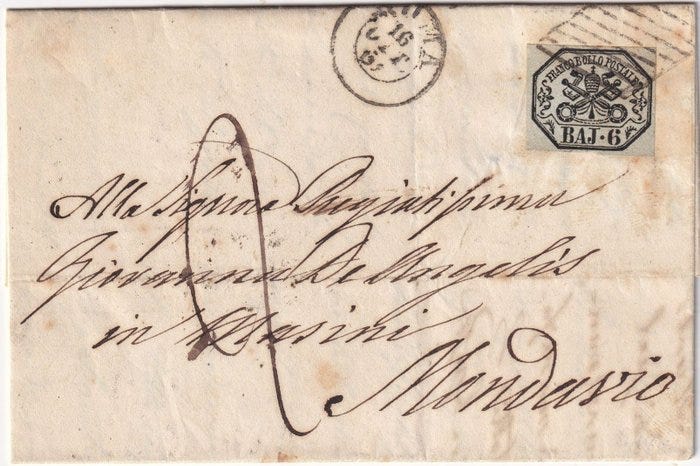 ROMA
16
FRANCO BOLLO POSTALE
BAJ·6
2
Alla Signora Pregiatissima
Giovanna De Angelis
in Masini
Mondavio